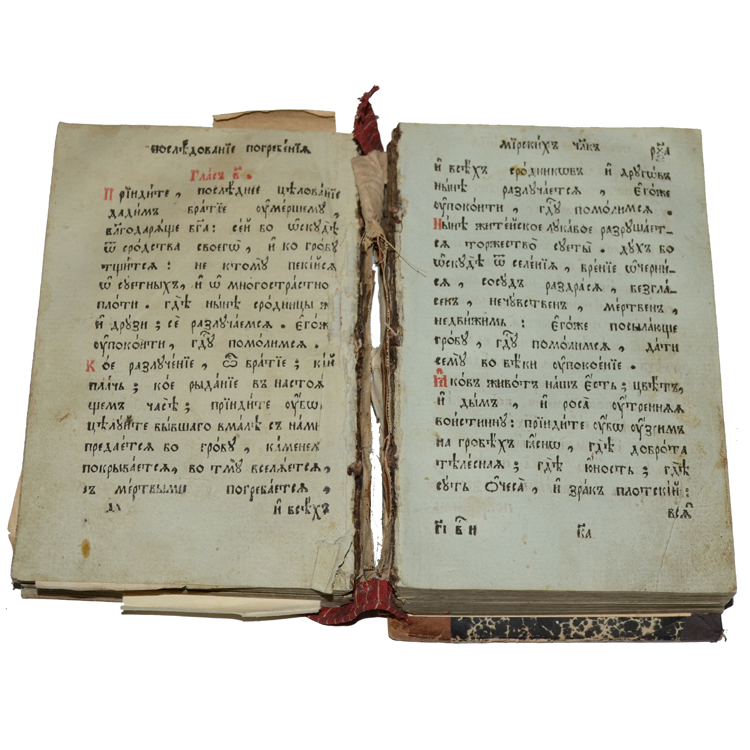 послѣдованіе погребенїѧ
Гласъ в҃.
Прїиди́те, послѣ́днее цѣлова́нїе
дади́мъ бра́тїе ᲂу҆ме́ршему,
бл҃годарѧ́ще бг҃а: се́й бо ѡ҆скꙋдѣ̀
ѿ сро́дства своегѡ̀, и҆ ко гро́бꙋ
тщи́тсѧ: не ктомꙋ̀ пекі́йсѧ
ѡ҆ сꙋ́етныхъ, и҆ ѡ҆ многостра́стно
пло́ти. гдѣ̀ ны́нѣ сро́дницы ж
и҆ дрꙋ́зи; сѐ разлꙋча́емсѧ. є҆го́же
ᲂу҆поко́ити, гдⷭ҇ꙋ помо́лимсѧ.
Ко́е разлꙋче́нїе, ѽ бра́тїе; кі́й
пла́чь; ко́е рыда́нїе въ настоѧ́
щемъ часѣ̀; прїиди́те ᲂу҆́бѡ
цѣлꙋ́йте бы́вшаго вма́лѣ съ на́ми
предае́тсѧ бо гро́бꙋ, ка́менем
покрыва́етсѧ, во тмꙋ̀ вселѧ́етсѧ,
съ ме́ртвыми погреба́етсѧ,
и҆ всѣ́хъ
мїрски́хъ чл҃къ
р҃ча
и҆ всѣ́хъ сро́дникѡвъ и҆ дрꙋгѡ́въ
ны́нѣ разлꙋча́етсѧ, є҆го́же
ᲂу҆поко́ити, гдⷭ҇ꙋ помо́лимсѧ.
Ны́нѣ жите́йское лꙋка́вое разрꙋша́ет_
сѧ торжество̀ сꙋеты̀. дꙋ́хъ бо
ѡ҆скꙋдѣ̀ ѿ селе́нїѧ, бре́нїе ѡ҆черни_
сѧ, сосꙋ́дъ раздра́сѧ, безгла_
сенъ, нечꙋ́вственъ, ме́ртвенъ,
недви́жимъ: є҆го́же посыла́юще
гро́бꙋ, гдⷭ҇ꙋ помо́лимсѧ, да́ти
семꙋ̀ во вѣ́ки ᲂу҆покое́нїе.
Ꙗ҆ко́въ живо́тъ на́шъ є҆́сть; цвѣ́тъ,
и҆ ды́мъ, и҆ роса̀ ᲂу҆́треннѧѧ
вои́стиннꙋ: прїиди́те ᲂу҆́бѡ ᲂу҆́зримъ
на гробѣ́хъ ꙗ҆́снѡ, гдѣ̀ добро́та
тѣле́снаѧ; гдѣ̀ ю҆́ность; гдѣ̀
сꙋ́ть ѻ҆чеса̀, и҆ зра́къ плотскі́й:
всѧ̑